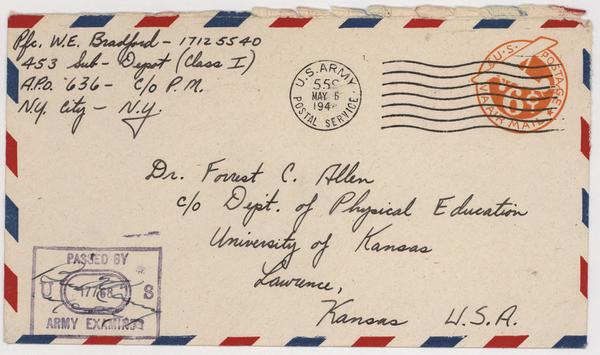 Pfc. W.E. Bradford - 17125540
453 Sub - Depot (Class I)
A.P.O. 636 - c/o P.M.
N.Y. City - N.Y.
U.S. ARMY
MAY 6
POSTAL SERVICE
U.S. POSTAGE
6¢
VIA AIR MAIL
Dr. Forrest C. Allen
c/o Dept. of Physical Education
University of Kansas
Lawrence,
Kansas U.S.A.
PASSED BY
U S
ARMY EXAMINER